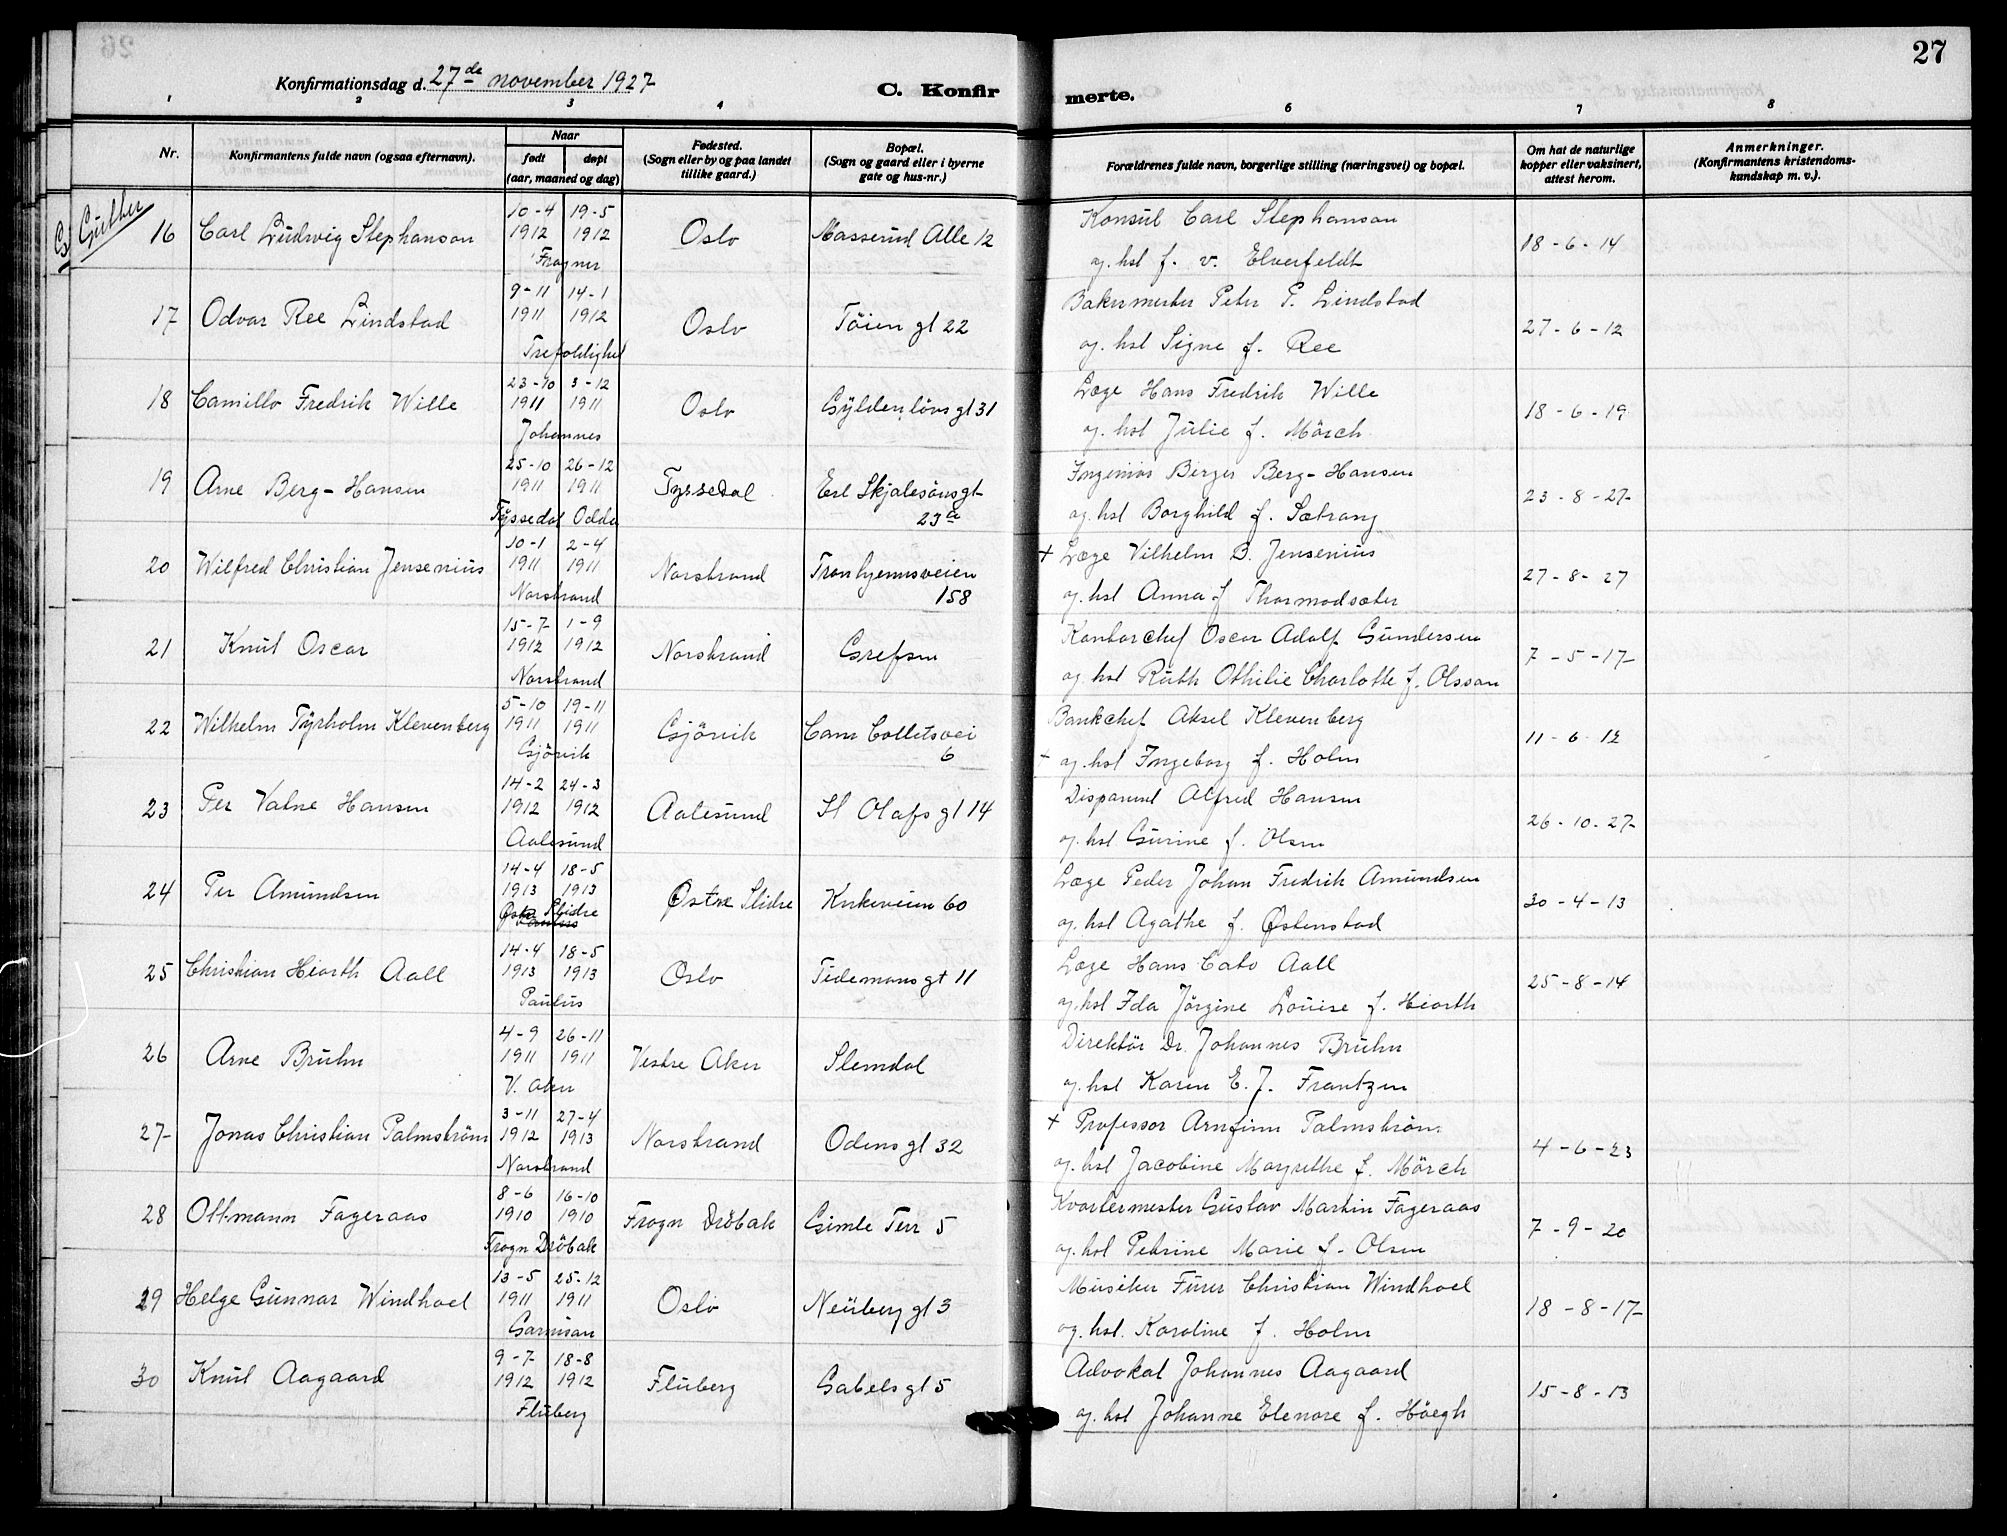 27
Konfirmationsdag d. 27de november 1927
C. Konfirmerte.
1 2 3 4 6 7 8
Nr.
Konfirmantens fulde navn (ogsaa efternavn).
Naar
født døpt
(aar, maaned og dag)
Fødested.
(Sogn eller by og paa landet
tillike gaard.)
Bopæl.
(Sogn og gaard eller i byerne
gate og hus-nr.)
Forældrenes fulde navn, borgerlige stilling (næringsvei) og bopæl.
Om hat de naturlige
kopper eller vaksinert,
attest herom.
Anmerkninger.
(Konfirmantens kristendoms-
kundskap m. v.).
16 Carl Ludwig Stephanson 10-4 1912 19-5 1912 Frogner Oslo Masserud Alle 12
Konsul Carl Stephanson
og. hst f. v. Elverfeldt 18-6-14
17 Odvar Ree Lindstad 9-11 1911 14-1 1912 Trefoldighet Oslo Töien gt 22
Bakermester Peter P. Lindstad
og. hst Signe f. Ree 27-6-12
18 Camillo Fredrik Wille 23-10 1911 3-12 1911 Johannes Oslo Gyldenlövs gt 31
Læge Hans Fredrik Wille
og. hst Julie f. Mörch 18-6-19
19 Arne Berg-Hansen 25-10 1911 26-12 1911 Tyssedal Odda Tyssedal Erl Skjalgsönsgt
23a
Ingeniör Birger Berg-Hansen
og. hst Borghild f. Sætrang 23-8-27
20 Wilfred Christian Jensenius 10-1 1911 2-4 1911 Norstrand Norstrand Tronhjemsveien
158
+ Læge Vilhelm B. Jensenius
og. hst Anna f Thormodsæter 27-8-27
21 Knut Oscar 15-7 1912 1-9 1912 Norstrand Norstrand Grefsen
Kontorchef Oscar Adolf Gundersen
og. hst Ruth Othilie Charlotte f. Olsson 7-5-17
22 Wilhelm Tyrholm Klevenberg 5-10 1911 19-11 1911 Gjövik Gjövik Cam Colletsvei
6
Bankchef Aksel Klevenberg
og. hst Ingeborg f. Holm 11-6-12
23 Per Vatne Hansen 14-2 1912 24-3 1912 Aalesund Aalesund St Olafs gt 14
Disponent Alfred Hansen
og. hst Gurine f. Olsen 26-10-27
24 Per Amundsen 14-4 1913 18-5 1913 Østre Slidre Østre Slidre Kirkeveien 60
Læge Peder Johan Fredrik Amundsen
og. hst Agathe f. Østenstad 30-4-13
25 Christian Hiorth Aall 14-4 1913 18-5 1913 Paulus Oslo Tidemans gt 11
Læge Hans Cato Aall
og. hst Ida Jörgine Louise f. Hiorth 25-8-14
26 Arne Bruhn 4-9 1911 26-11 1911 V. Aker Vestre Aker Slemdal
Direktör Dr. Johannes Bruhn
og. hst Karen E. f. Frantzen
27 Jonas Christian Palmström 3-11 1912 27-4 1913 Norstrand Norstrand Odens gt 32
+ Professor Arnfinn Palmström
og. hst Jacobine Margrethe f. Mörch 4-6-23
28 Ottmann Fageraas 8-6 1910 16-10 1910 Frogn Dröbak Frogn Dröbak Gimle Terr 5
Kvartermester Gustav Martin Fageraas
og. hst Petrine Marie f. Olsen 7-9-20
29 Helge Gunnar Windhoel 13-5 1911 25-12 1911 Garnison Oslo Neuberg gt 3
Musiker Furer Christian Windhoel
og. hst. Karoline f. Holm 18-8-17
30 Knut Aagaard 9-7 1912 18-8 1912 Fluberg Fluberg Gabels gt 5
Advokat Johannes Aagaard
og. hst Johanne Elenore f. Höegh 15-8-13